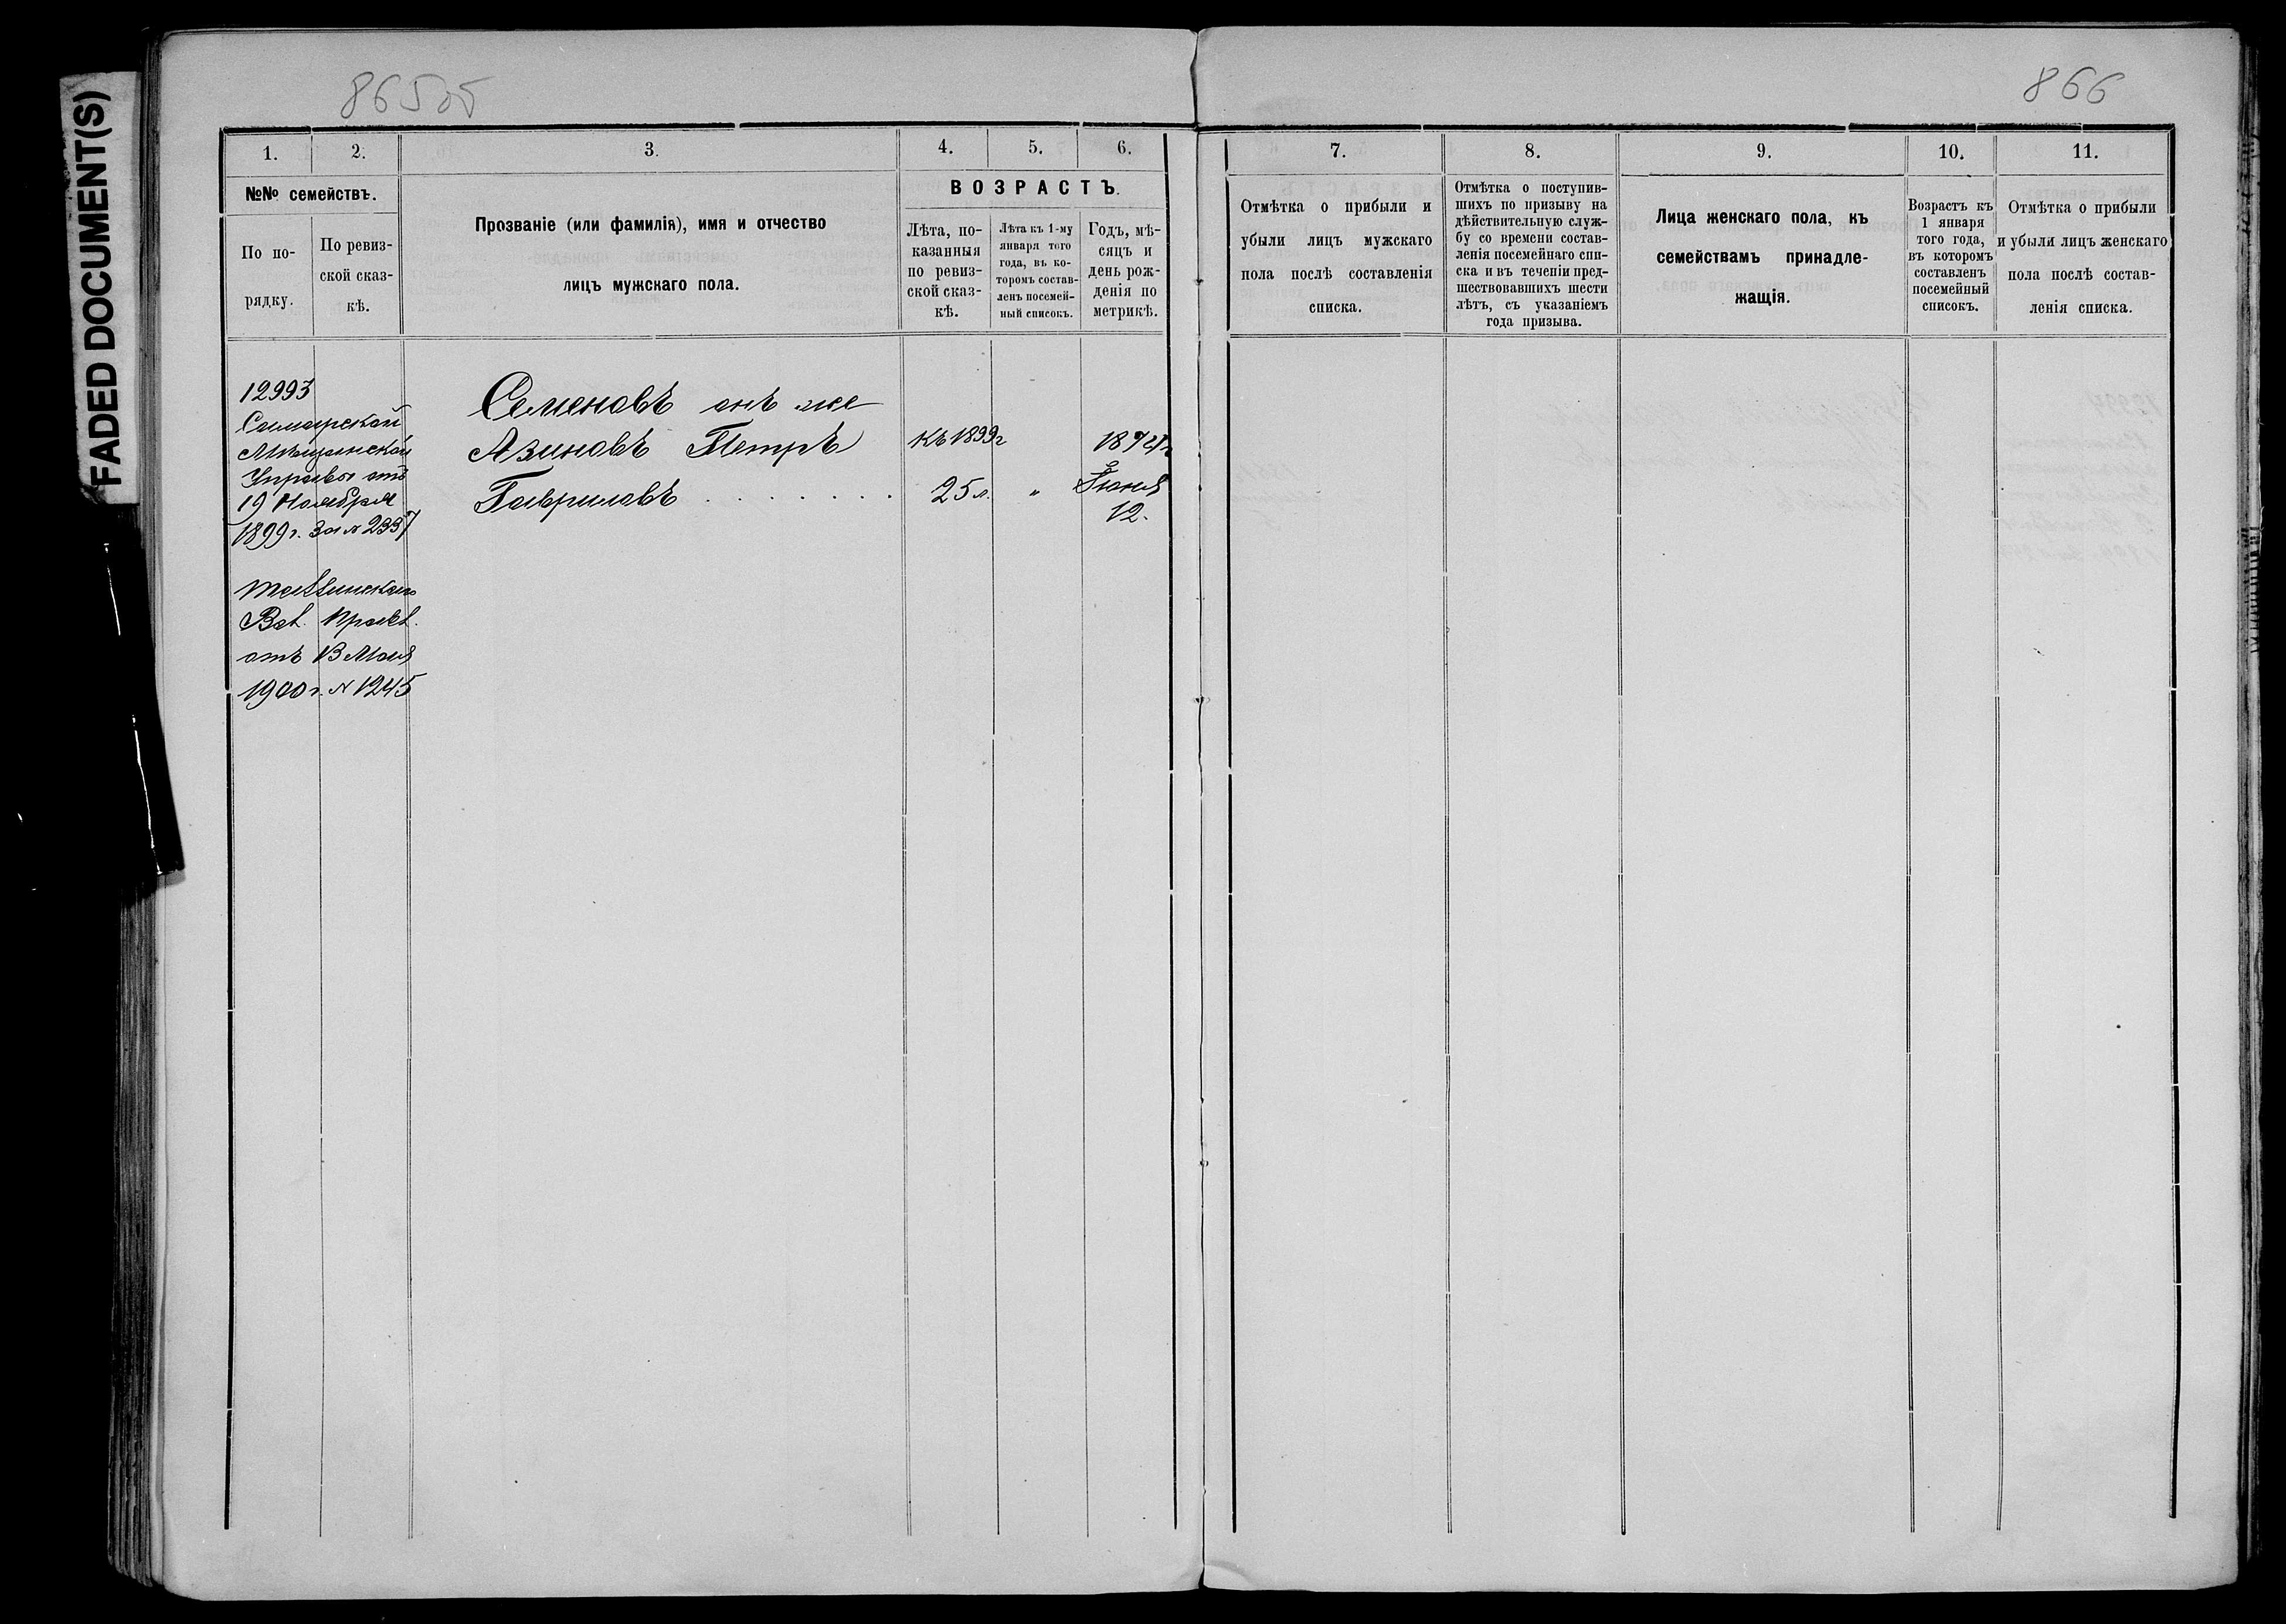 FADED DOCUMENT(S)
865об
866
1. 2. 3. 4. 5. 6.
№№ семействъ.
По по-
рядку.
По ревиз-
ской сказ-
кѣ.
Прозваніе (или фамилія), имя и отчество
лицъ мужскаго пола.
ВОЗРАСТЪ.
Лѣта, по-
казанныя
по ревиз-
ской сказ-
кѣ.
Лѣта къ 1-му
января того
года, въ ко-
торомъ состав-
ленъ посемей-
ный списокъ.
Годъ, мѣ-
сяцъ и
день рож-
денія по
метрикѣ.
12993
Самарской
Мѣщанской
Управы отъ
19 Ноября
1899 г. за № 2337
Вол. Правл.
отъ 13 Мая
1900 г. № 1245
Семеновъ онъ же
Азиновъ Петръ
Гавриловъ . . . . . . . .
Къ 1899 г
25 л. "
Іюня
12.
7. 8. 9. 10. 11.
Отмѣтка о прибыли и
убыли лицъ мужскаго
пола послѣ составленія
списка.
Отмѣтка о поступив-
шихъ по призыву на
дѣйствительную служ-
бу со времени состав-
ленія посемейнаго спи-
ска и въ теченіи пред-
шествовавшихъ шести
лѣтъ, съ указаніемъ
года призыва.
Лица женскаго пола, къ
семействамъ принадле-
жащія.
Возрастъ къ
1 января
того года,
въ которомъ
составленъ
посемейный
списокъ.
Отмѣтка о прибыли
и убыли лицъ женскаго
пола послѣ состав-
ленія списка.